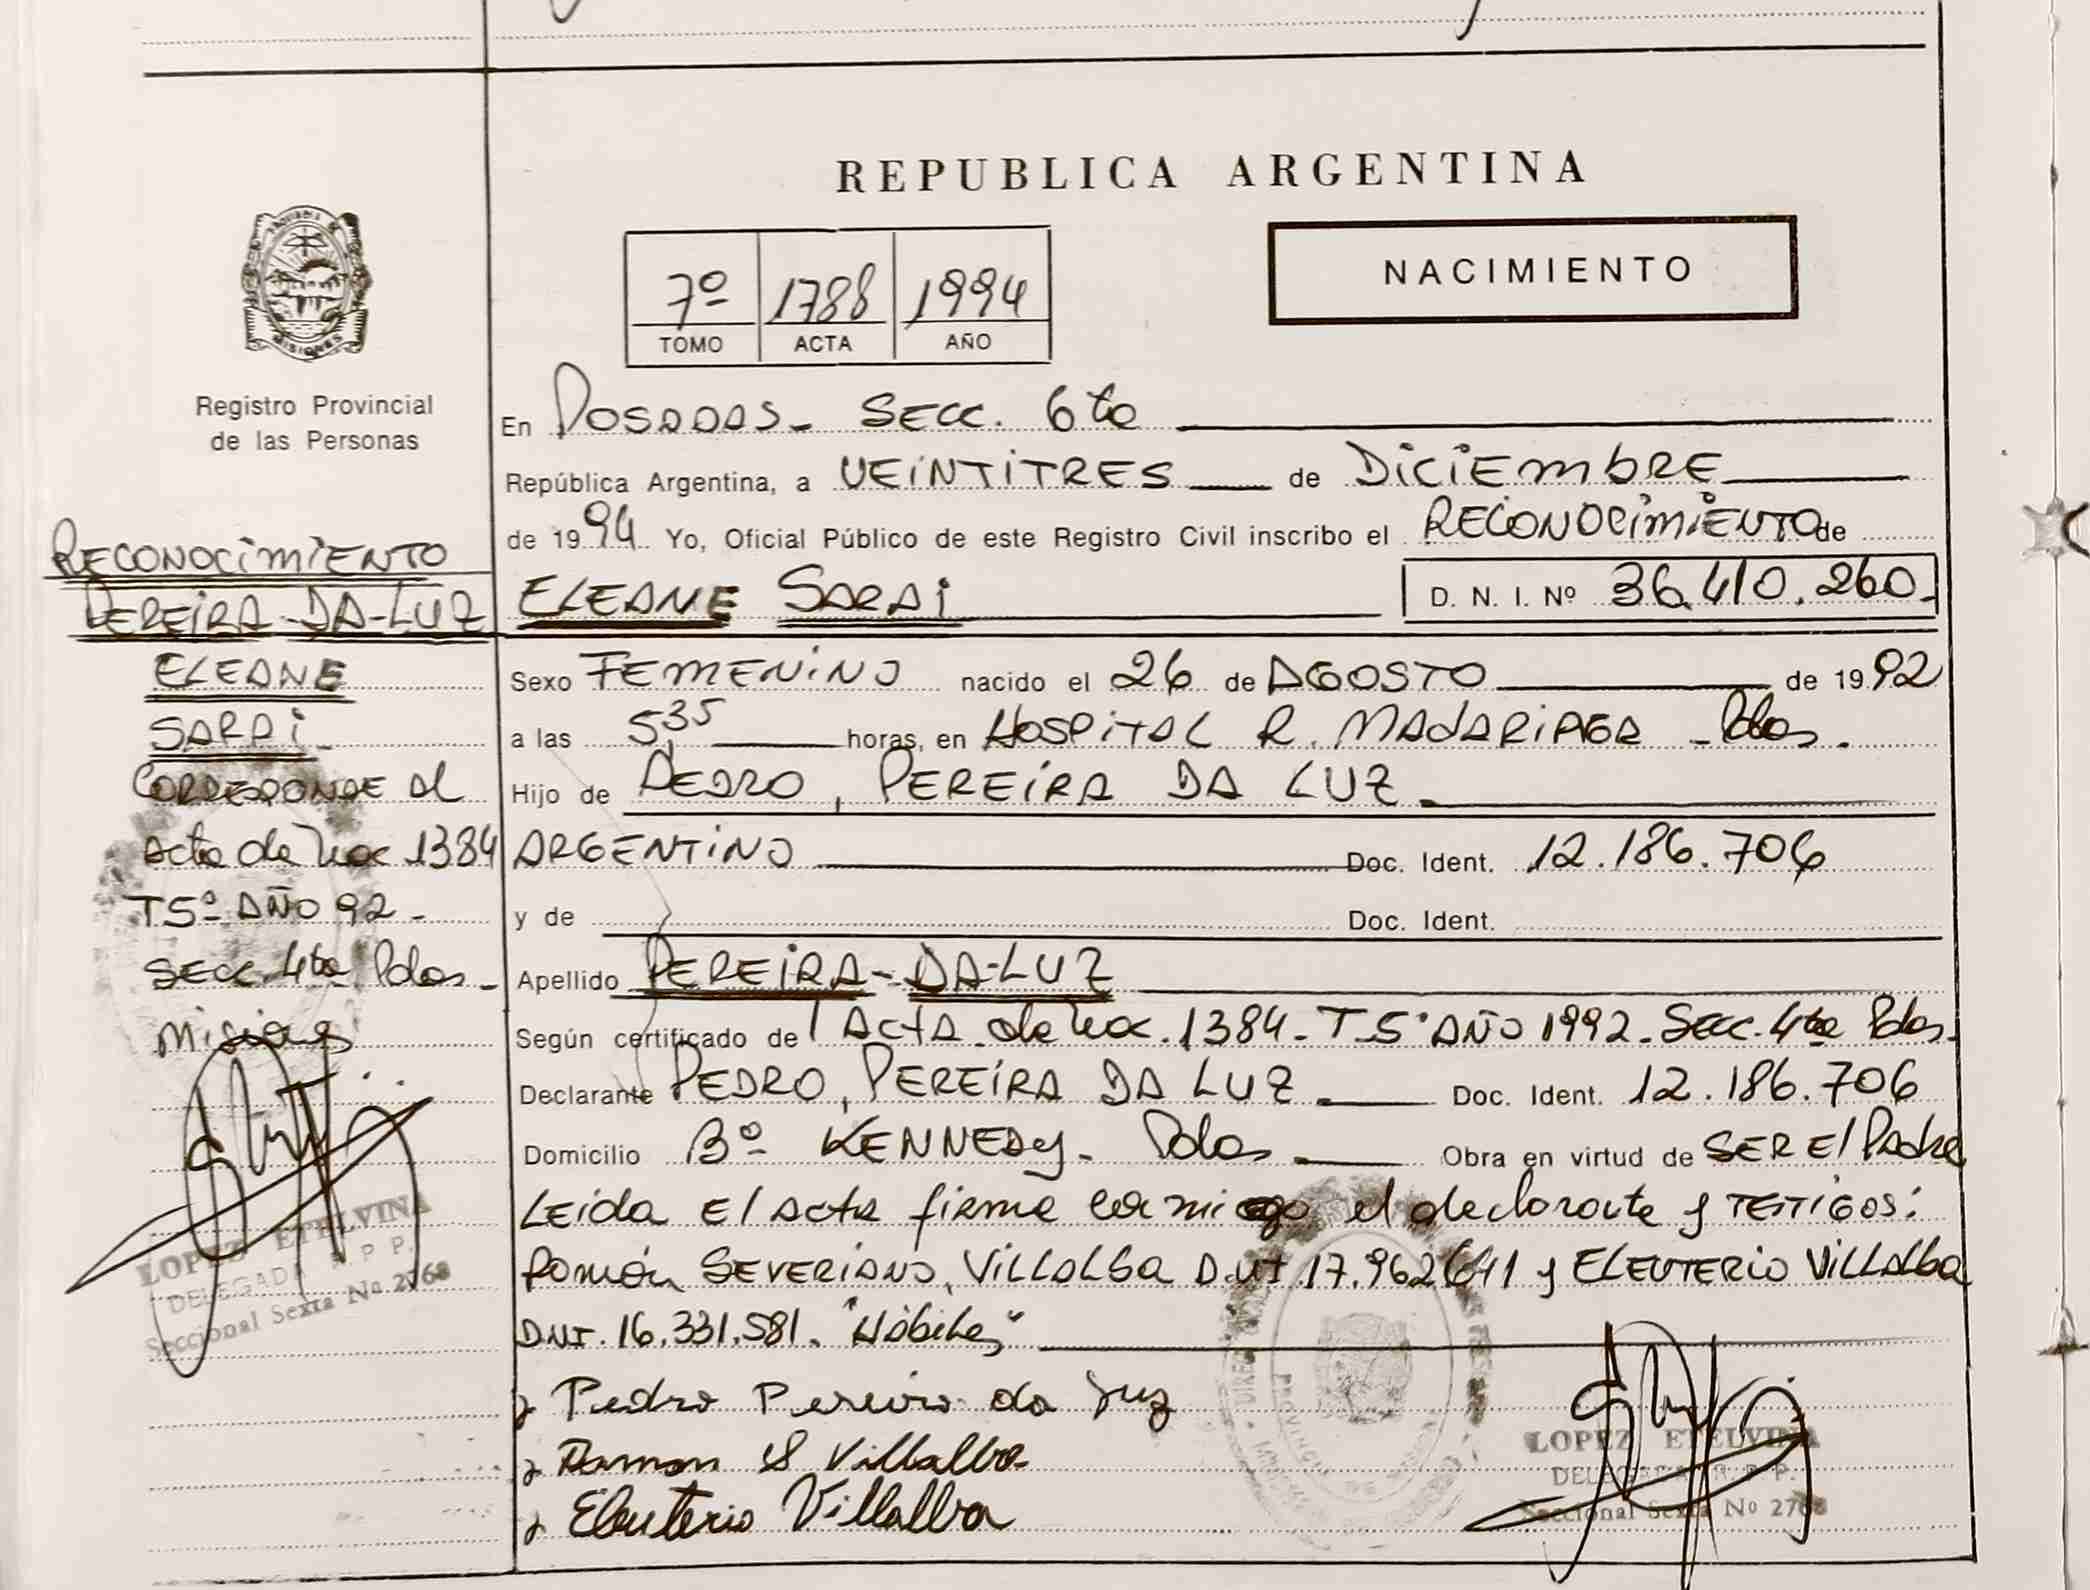 REPUBLICA ARGENTINA
NACIMIENTO
7º 1788 1994
TOMO ACTA AÑO
MISIONES
Registro Provincial
de las Personas
RECONOCIMIENTO
PEREIRA-DA-LUZ
ELEANE
SARAI
CORRESPONDE al
Acta de Nac 1384
T5º AÑO 92-
SECC. 4ta Pdas-
Misiones
LOPEZ ETELVINA
DELEGADA R. P. P.
Seccional Sexta Nº 2768
En POSADAS- SECC. 6ta
República Argentina, a VEINTITRES de DICIEMBRE
de 1994 Yo, Oficial Público de este Registro Civil inscribo el RECONOCIMIENTO de
ELEANE SARAI D. N. I. Nº 36.410.260.
Sexo FEMENINO nacido el 26 de AGOSTO de 1992
a las 5 35 horas, en HOSPITAL R. MADARIAGA - Pdas.
Hijo de PEDRO, PEREIRA DA LUZ
ARGENTINO Doc. Ident. 12.186.706
y de Doc. Ident.
Apellido PEREIRA-DA-LUZ
Según certificado de ACTA de Nac. 1384- T-5º AÑO 1992-Secc. 4ta Pdas.
Declarante PEDRO, PEREIRA DA LUZ Doc. Ident. 12.186.706
Domicilio Bº KENNEDY- Pdas Obra en virtud de SER El Padre
LEida El Acta firma conmigo el declarante y TESTIGOS:
Ramón SEVERIANO, VILLALBA D.NI. 17.962.641 y ELEUTERIO VILLALBA
D.NI. 16.331.581. "Hábiles"
Pedro Pereira da Luz
Ramon S Villalba
Eleuterio Villalba
LOPEZ ETELVINA
DELEGADA R. P. P.
Seccional Sexta Nº 2768